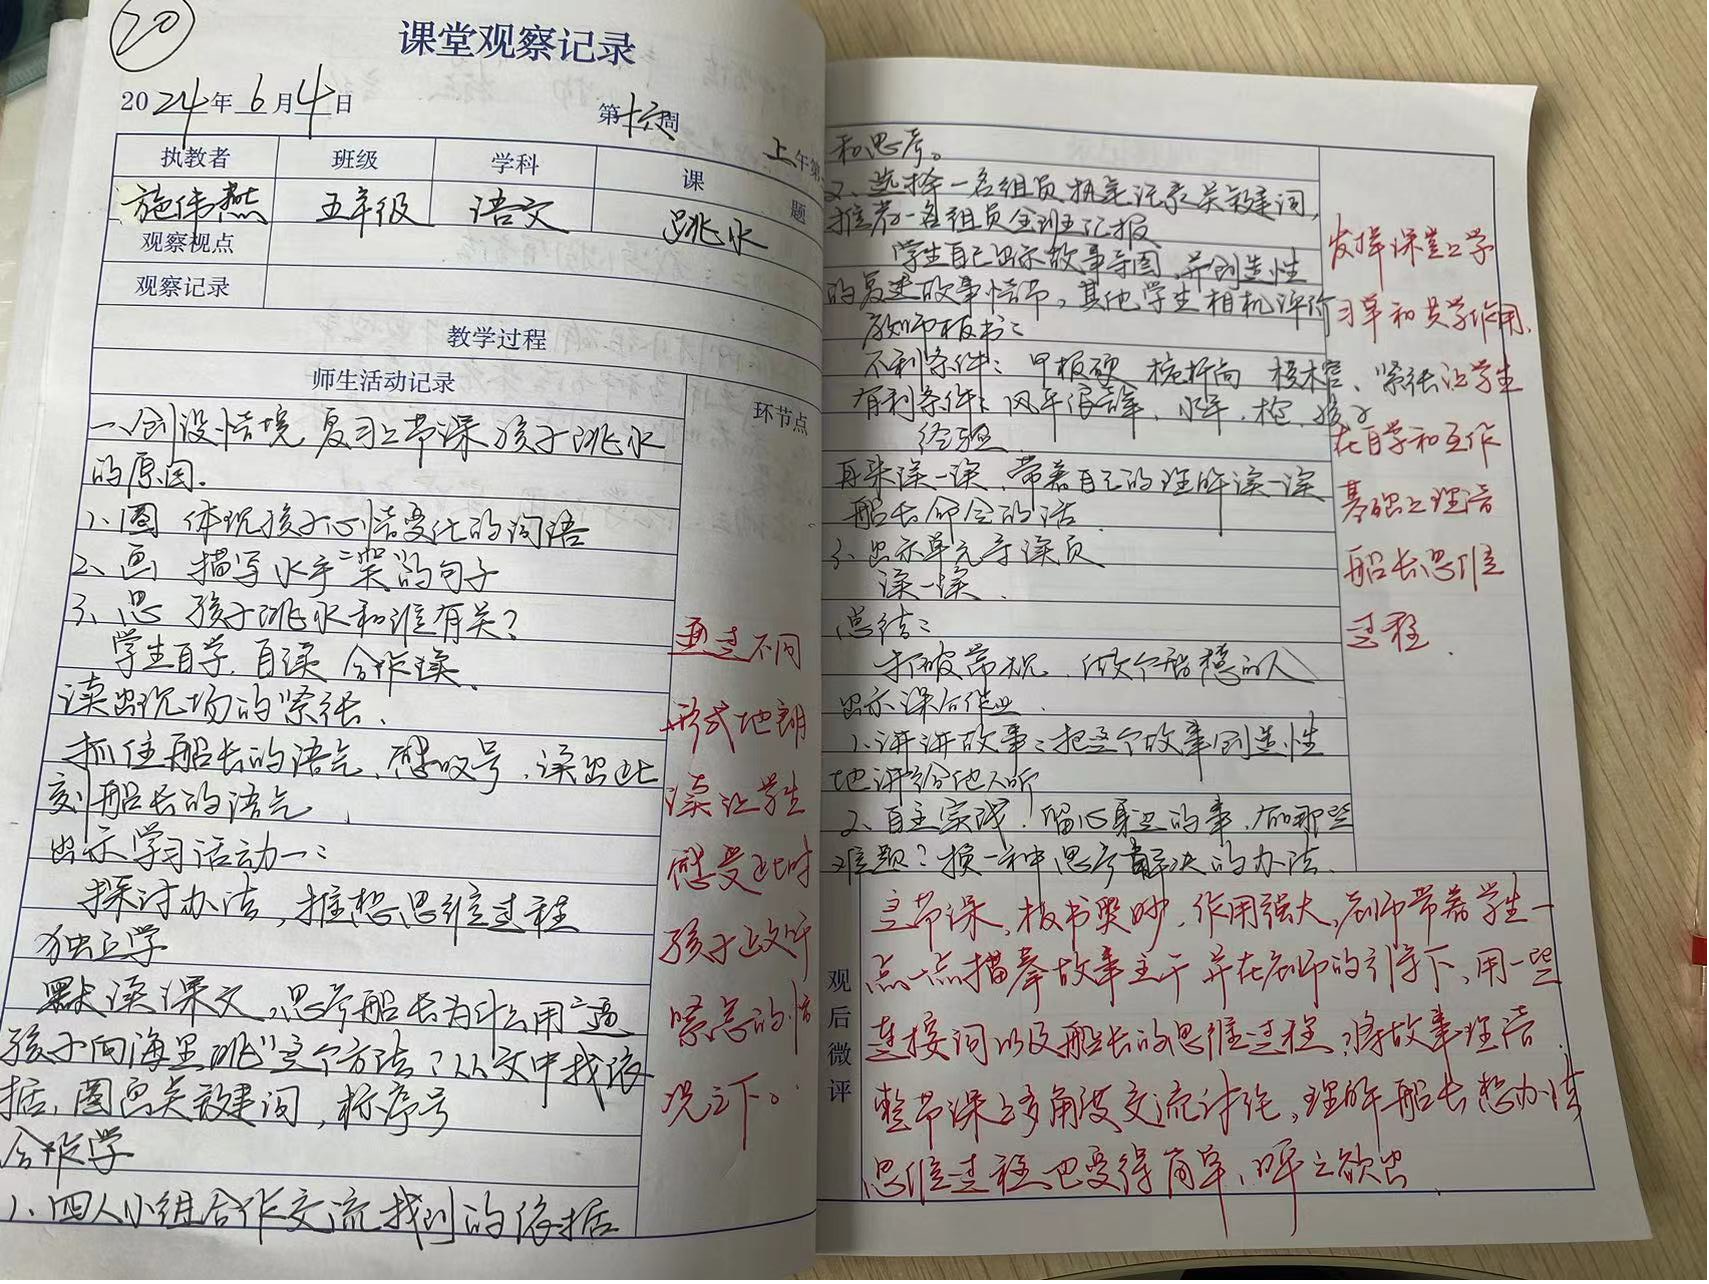 20
课堂观察记录
2024年6月4日
第十六周
上午第
执教者 班级 学科 课题
施伟燕 五年级 语文 跳水
观察视点
观察记录
教学过程
师生活动记录
环节点
一、创设情境,复习上节课孩子跳水
的原因。
1、圈 体现孩子心情变化的词语
2、画 描写水手“笑”的句子
3、思 孩子跳水和谁有关?
学生自学,自读 合作读、
读出现场的紧张、
抓住船长的语气、感叹号,读出此
刻船长的语气、
出示学习活动一:
探讨办法,推想思维过程
独立学
默读课文,思考船长为什么用“逼
孩子向海里跳”这个方法?从文中找依
据,圈画关键词,标序号
合作学
1、四人小组合作交流找到的依据
通过不同
形式地朗
读让学生
感受此时
孩子正处于
紧急的情
况之下。
和思考。
2、选择一名组员执笔记录关键词,
推荐一名组员全班汇报
学生自己出示故事导图,并创造性
的复述故事情节,其他学生相机评价
教师板书:
不利条件:甲板硬 桅杆高 横木窄、紧张
有利条件:风平浪静,水手,枪,孩子
经验
再来读一读,带着自己的理解读一读
船长命令的话
3、出示单元导读页
读一读
总结:
打破常规,做个智慧的人
出示课后作业
1、讲讲故事:把这个故事创造性
地讲给他人听
2、自主实践:留心身边的事,有哪些
难题?换一种思考解决的办法、
发挥课堂上学
习单和共学作用,
让学生
在自学和互作
基础上理清
船长思维
过程.
观后微评
这节课,板书奥妙,作用强大,教师带着学生一
点一点描摹故事主干并在教师的引导下,用一些
连接词以及船长的思维过程,将故事理清.
整节课上多角度交流讨论,理解船长想办法
思维过程也变得简单、呼之欲出